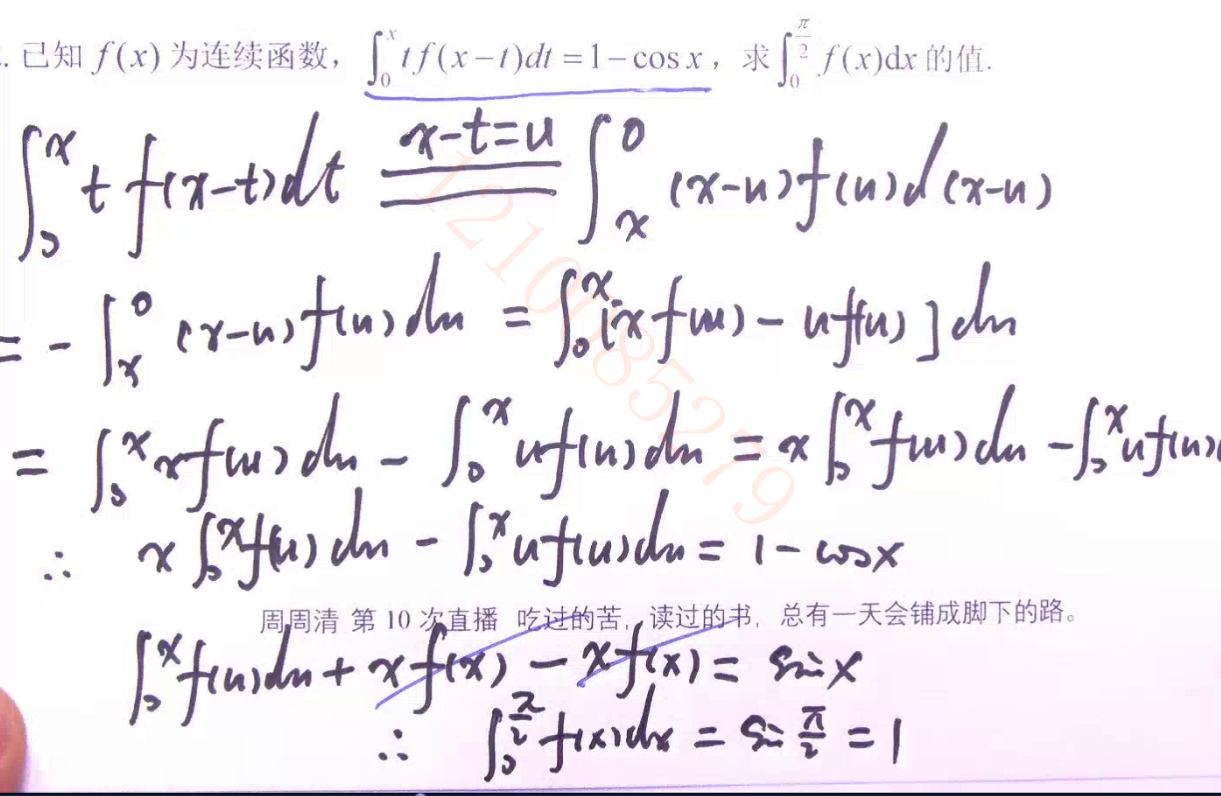 . 已知 f(x) 为连续函数，∫₀ˣ tf(x−t)dt = 1−cos x，求 ∫₀^(π/2) f(x)dx 的值.
∫₀ˣ t f(x-t)dt =(x-t=u)= ∫ₓ⁰ (x-u)f(u)d(x-u)
= - ∫ₓ⁰ (x-u)f(u)du = ∫₀ˣ [xf(u) - uf(u)]du
= ∫₀ˣ xf(u)du - ∫₀ˣ uf(u)du = x∫₀ˣ f(u)du - ∫₀ˣ uf(u)
∴ x∫₀ˣ f(u)du - ∫₀ˣ uf(u)du = 1 - cosx
周周清 第 10 次直播 吃过的苦，读过的书，总有一天会铺成脚下的路。
∫₀ˣ f(u)du + xf(x) - xf(x) = sinx
∴ ∫₀^(π/2) f(x)dx = sin π/2 = 1
1210085279